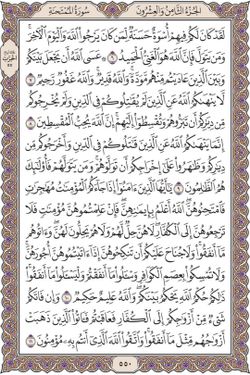 الجزء الثامن والعشرون سورة الممتحنة
لَقَدْ كَانَ لَكُمْ فِيهِمْ أُسْوَةٌ حَسَنَةٌ لِّمَن كَانَ يَرْجُوا۟ ٱللَّهَ وَٱلْيَوْمَ ٱلْـَٔاخِرَ
وَمَن يَتَوَلَّ فَإِنَّ ٱللَّهَ هُوَ ٱلْغَنِىُّ ٱلْحَمِيدُ ٦ عَسَى ٱللَّهُ أَن يَجْعَلَ بَيْنَكُمْ
وَبَيْنَ ٱلَّذِينَ عَادَيْتُم مِّنْهُم مَّوَدَّةً وَٱللَّهُ قَدِيرٌ وَٱللَّهُ غَفُورٌ رَّحِيمٌ ٧
لَّا يَنْهَىٰكُمُ ٱللَّهُ عَنِ ٱلَّذِينَ لَمْ يُقَٰتِلُوكُمْ فِى ٱلدِّينِ وَلَمْ يُخْرِجُوكُم
مِّن دِيَٰرِكُمْ أَن تَبَرُّوهُمْ وَتُقْسِطُوٓا۟ إِلَيْهِمْ إِنَّ ٱللَّهَ يُحِبُّ ٱلْمُقْسِطِينَ ٨
إِنَّمَا يَنْهَىٰكُمُ ٱللَّهُ عَنِ ٱلَّذِينَ قَٰتَلُوكُمْ فِى ٱلدِّينِ وَأَخْرَجُوكُم مِّن
دِيَٰرِكُمْ وَظَٰهَرُوا۟ عَلَىٰٓ إِخْرَاجِكُمْ أَن تَوَلَّوْهُمْ وَمَن يَتَوَلَّهُمْ فَأُو۟لَٰٓئِكَ
هُمُ ٱلظَّٰلِمُونَ ٩ يَٰٓأَيُّهَا ٱلَّذِينَ ءَامَنُوٓا۟ إِذَا جَآءَكُمُ ٱلْمُؤْمِنَٰتُ مُهَٰجِرَٰتٍ
فَٱمْتَحِنُوهُنَّ ٱللَّهُ أَعْلَمُ بِإِيمَٰنِهِنَّ فَإِنْ عَلِمْتُمُوهُنَّ مُؤْمِنَٰتٍ
فَلَا تَرْجِعُوهُنَّ إِلَى ٱلْكُفَّارِ لَا هُنَّ حِلٌّ لَّهُمْ وَلَا هُمْ يَحِلُّونَ لَهُنَّ
وَءَاتُوهُم مَّآ أَنفَقُوا۟ وَلَا جُنَاحَ عَلَيْكُمْ أَن تَنكِحُوهُنَّ إِذَآ ءَاتَيْتُمُوهُنَّ أُجُورَهُنَّ
وَلَا تُمْسِكُوا۟ بِعِصَمِ ٱلْكَوَافِرِ وَسْـَٔلُوا۟ مَآ أَنفَقْتُمْ وَلْيَسْـَٔلُوا۟ مَآ أَنفَقُوا۟
ذَٰلِكُمْ حُكْمُ ٱللَّهِ يَحْكُمُ بَيْنَكُمْ وَٱللَّهُ عَلِيمٌ حَكِيمٌ ١٠ وَإِن فَاتَكُمْ
شَىْءٌ مِّنْ أَزْوَٰجِكُمْ إِلَى ٱلْكُفَّارِ فَعَاقَبْتُمْ فَـَٔاتُوا۟ ٱلَّذِينَ ذَهَبَتْ
أَزْوَٰجُهُم مِّثْلَ مَآ أَنفَقُوا۟ وَٱتَّقُوا۟ ٱللَّهَ ٱلَّذِىٓ أَنتُم بِهِۦ مُؤْمِنُونَ ١١
٥٥٠